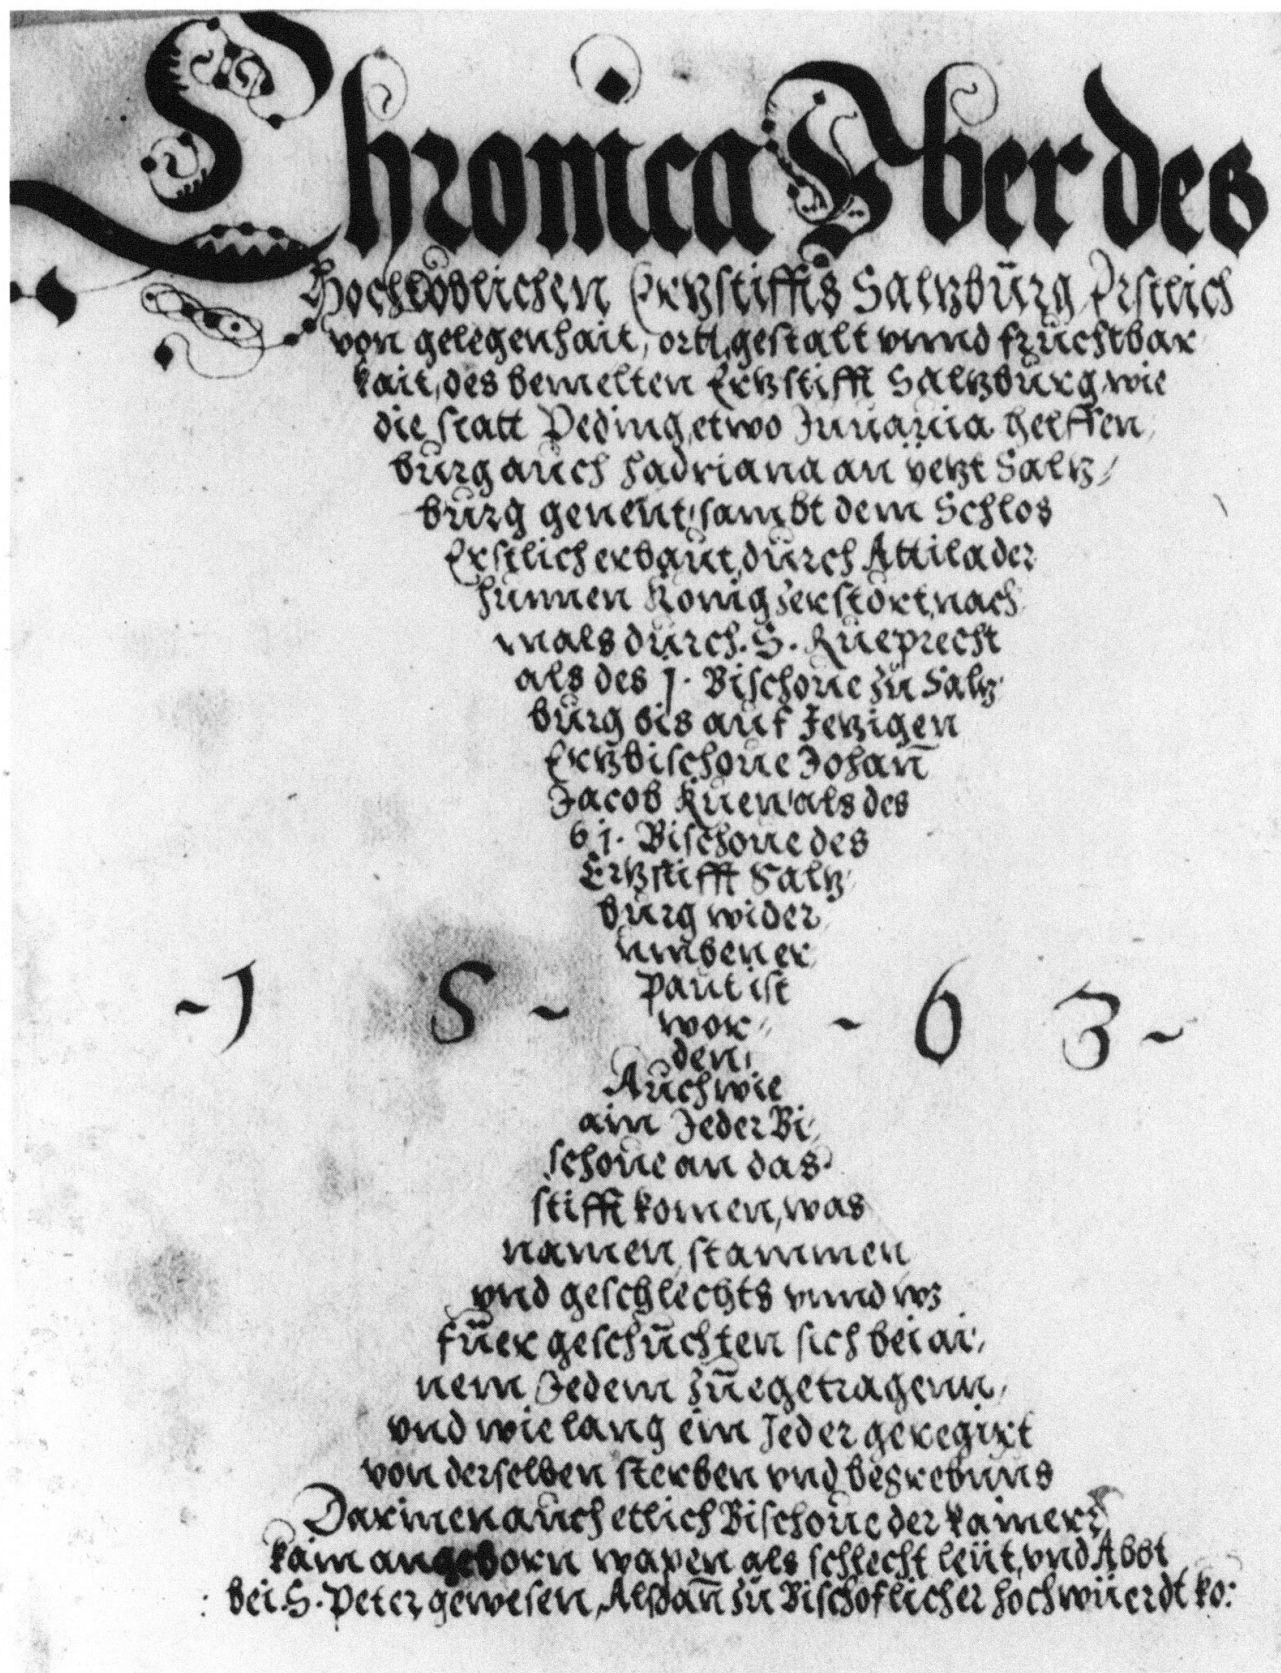 Chronica Vber des
Hochloblichen Ertzstiffts Saltzbürg, Erstlich
von gelegenhait, ortt, gestalt vnnd früchtbar
kait, des bemelten Ertzstifft Saltzbürg, wie
die statt Peding, etwo Juuauia helffen,
bürg auch hadriana an yetzt Saltz,
bürg genent, sambt dem Schlos
Erstlich erbaut, dürch Attila der
hünnen König zerstört, nach
mals dürch. S. Rueprecht
als des j. Bischoue zu Saltz
bürg bis auf Jetzigen
Ertzbischoue Johan̄
Jacob Kuen als des
6j. Bischoue des
Ertzstifft Saltz
bürg wider
umben er
paut ist
wor,
den,
-1 5 - - 6 3 -
Auch wie
ain Jeder Bi,
schoue an das
stifft komen, was
namen, stammen
vnd geschlechts vnnd wz
füer geschüchten sich bei ai,
nem Jedem züegetragenn,
vnd wie lang ein Jeder geregirt
von derselben sterben vnd begrebnus
Darinen auch etlich Bischoue der kainer
kain angeborn wapen als schlecht leüt, vnd Abbt
bei. S. Peter gewesen, Alßdan̄ zu Bischoflicher hochwüerdt ko: